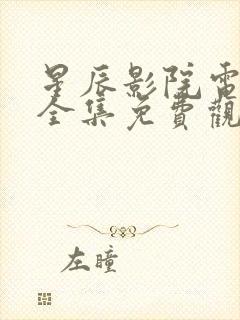 星辰影院電
全集免費觀
左瞳